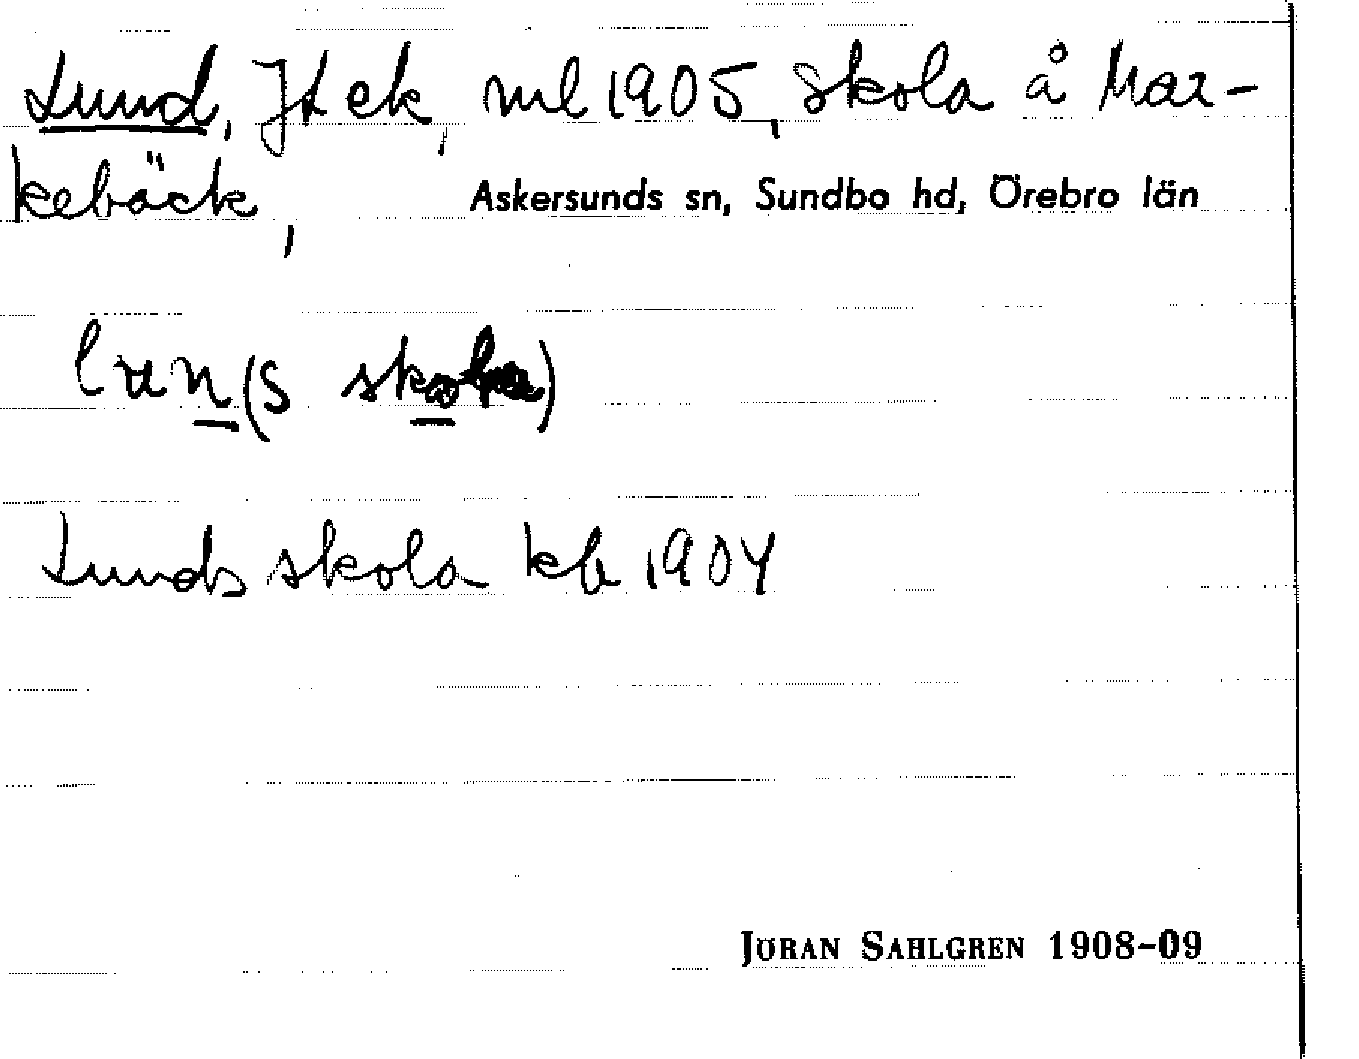 Lund, JEek, ml 1905, Skola å Mar-
kebäck, Askersunds sn, Sundbo hd, Örebro län
lun(s skola)
Lunds skola kb 1904
JÖRAN SAHLGREN 1908-09